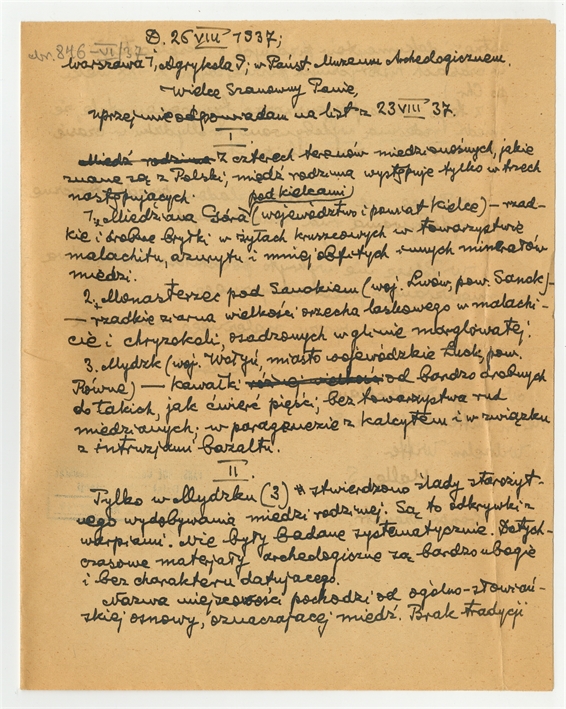 D. 26 VIII 1937;
Nr. 846-VI/37
Warszawa 7, Agrykola 9; w Państ. Muzeum Archeologicznem.
Wielce Szanowny Panie,
uprzejmie odpowiadam na list z 23 VIII 37.
I
Miedź rodzima Z czterech terenów miedzionośnych, jakie
znane są z Polski, miedź rodzima występuje tylko w trzech
następujących.
pod Kielcami)
1. Miedziana Góra (województwo i powiat Kielce) — rzad-
kie i drobne bryłki w żyłach kruszcowych w towarzystwie
malachitu, azurytu i mniej obfitych innych minerałów
miedzi.
2. Monasterzec pod Sanokiem (woj. Lwów, pow. Sanok) —
— rzadkie ziarna wielkości orzecha laskowego w malachi-
cie i chryzokoli, osadzonych w glinie marglowatej.
3. Mydzk (woj. Wołyń, miasto wojewódzkie Łuck, pow.
Równe) — kawałki różnej wielkości od bardzo drobnych
do takich, jak ćwierć pięści; bez towarzystwa rud
miedzianych; w paragenezie z kalcytem i w związku
z intruzjami bazaltu.
II
Tylko w Mydzku (3) stwierdzono ślady starożyt-
nego wydobywania miedzi rodzimej. Są to odkrywki z
warpiami. Nie były badane systematycznie. Dotych-
czasowe materjały archeologiczne są bardzo ubogie
i bez charakteru datującego.
Nazwa miejscowości pochodzi od ogólno-słowiań-
skiej osnowy, oznaczającej miedź. Brak tradycji